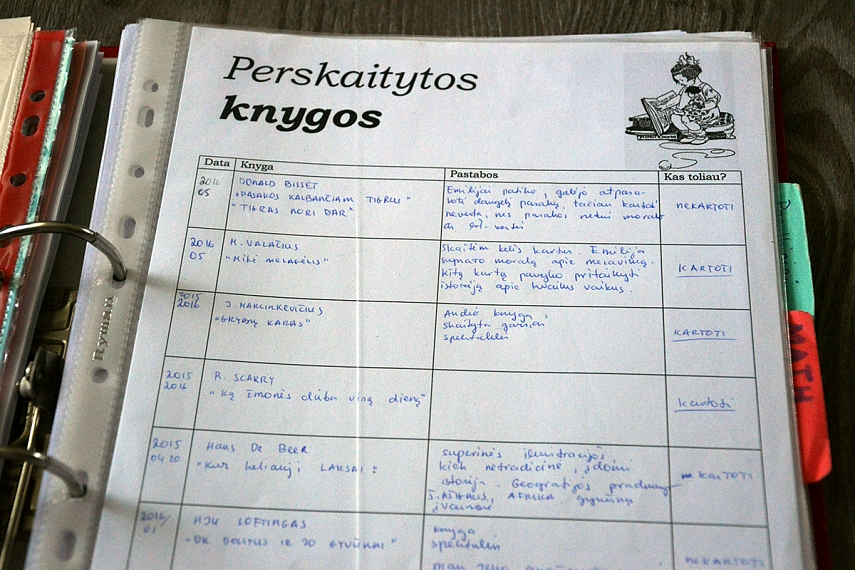 Perskaitytos
knygos
Data Knyga Pastabos Kas toliau?
2016
05
DONALD BISSET
"PASAKOS KALBANČIAM TIGRUI"
"TIGRAS NORI DAR"
Emilijai patiko, galėjo atpasa-
koti daugelį pasakų, tačiau kartoti
neverta, nes pasakos neturi moralo
NEKARTOTI
2016
05
M. VALAČIUS
"Mikė melagėlis"
Skaitėm kelis kartus. Emilija
suprato moralą apie melavimą.
Kitą kartą pavyko pritaikyti
istoriją apie kvailus vaikus.
KARTOTI
2015
2016
J. MARCINKEVIČIUS
"GRYBŲ KARAS"
Audio knyga,
skaityta
spektaklis
KARTOTI
2015
2016
R. SCARRY
"Ką žmonės dirba visą dieną"
Kartoti
2015
04 20
Hans De Beer
"Kur keliauji LARSAI?"
superinės iliustracijos,
kiek netradicinė, įdomi
istorija. Geografijos
AFRIKA. gyvūnai
įvairovė
NEKARTOTI
2016/
01
HJU LOFTINGAS
"DR DOLITLIS IR JO GYVŪNAI"
knyga
spektaklis
man
NEKARTOTI
Ryman
MATH